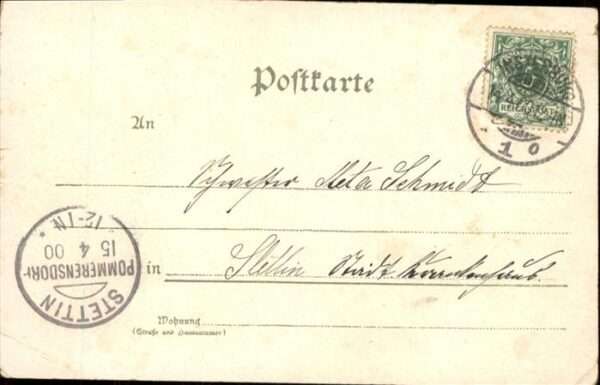 Postkarte
REICHSPOST
1 o
An
Schwester Meta Schmidt
in Stettin Stadt Krankenhaus.
STETTIN
POMMERENSDORF
15 4 00
* 12-1N *
Wohnung
(Straße und Hausnummer)